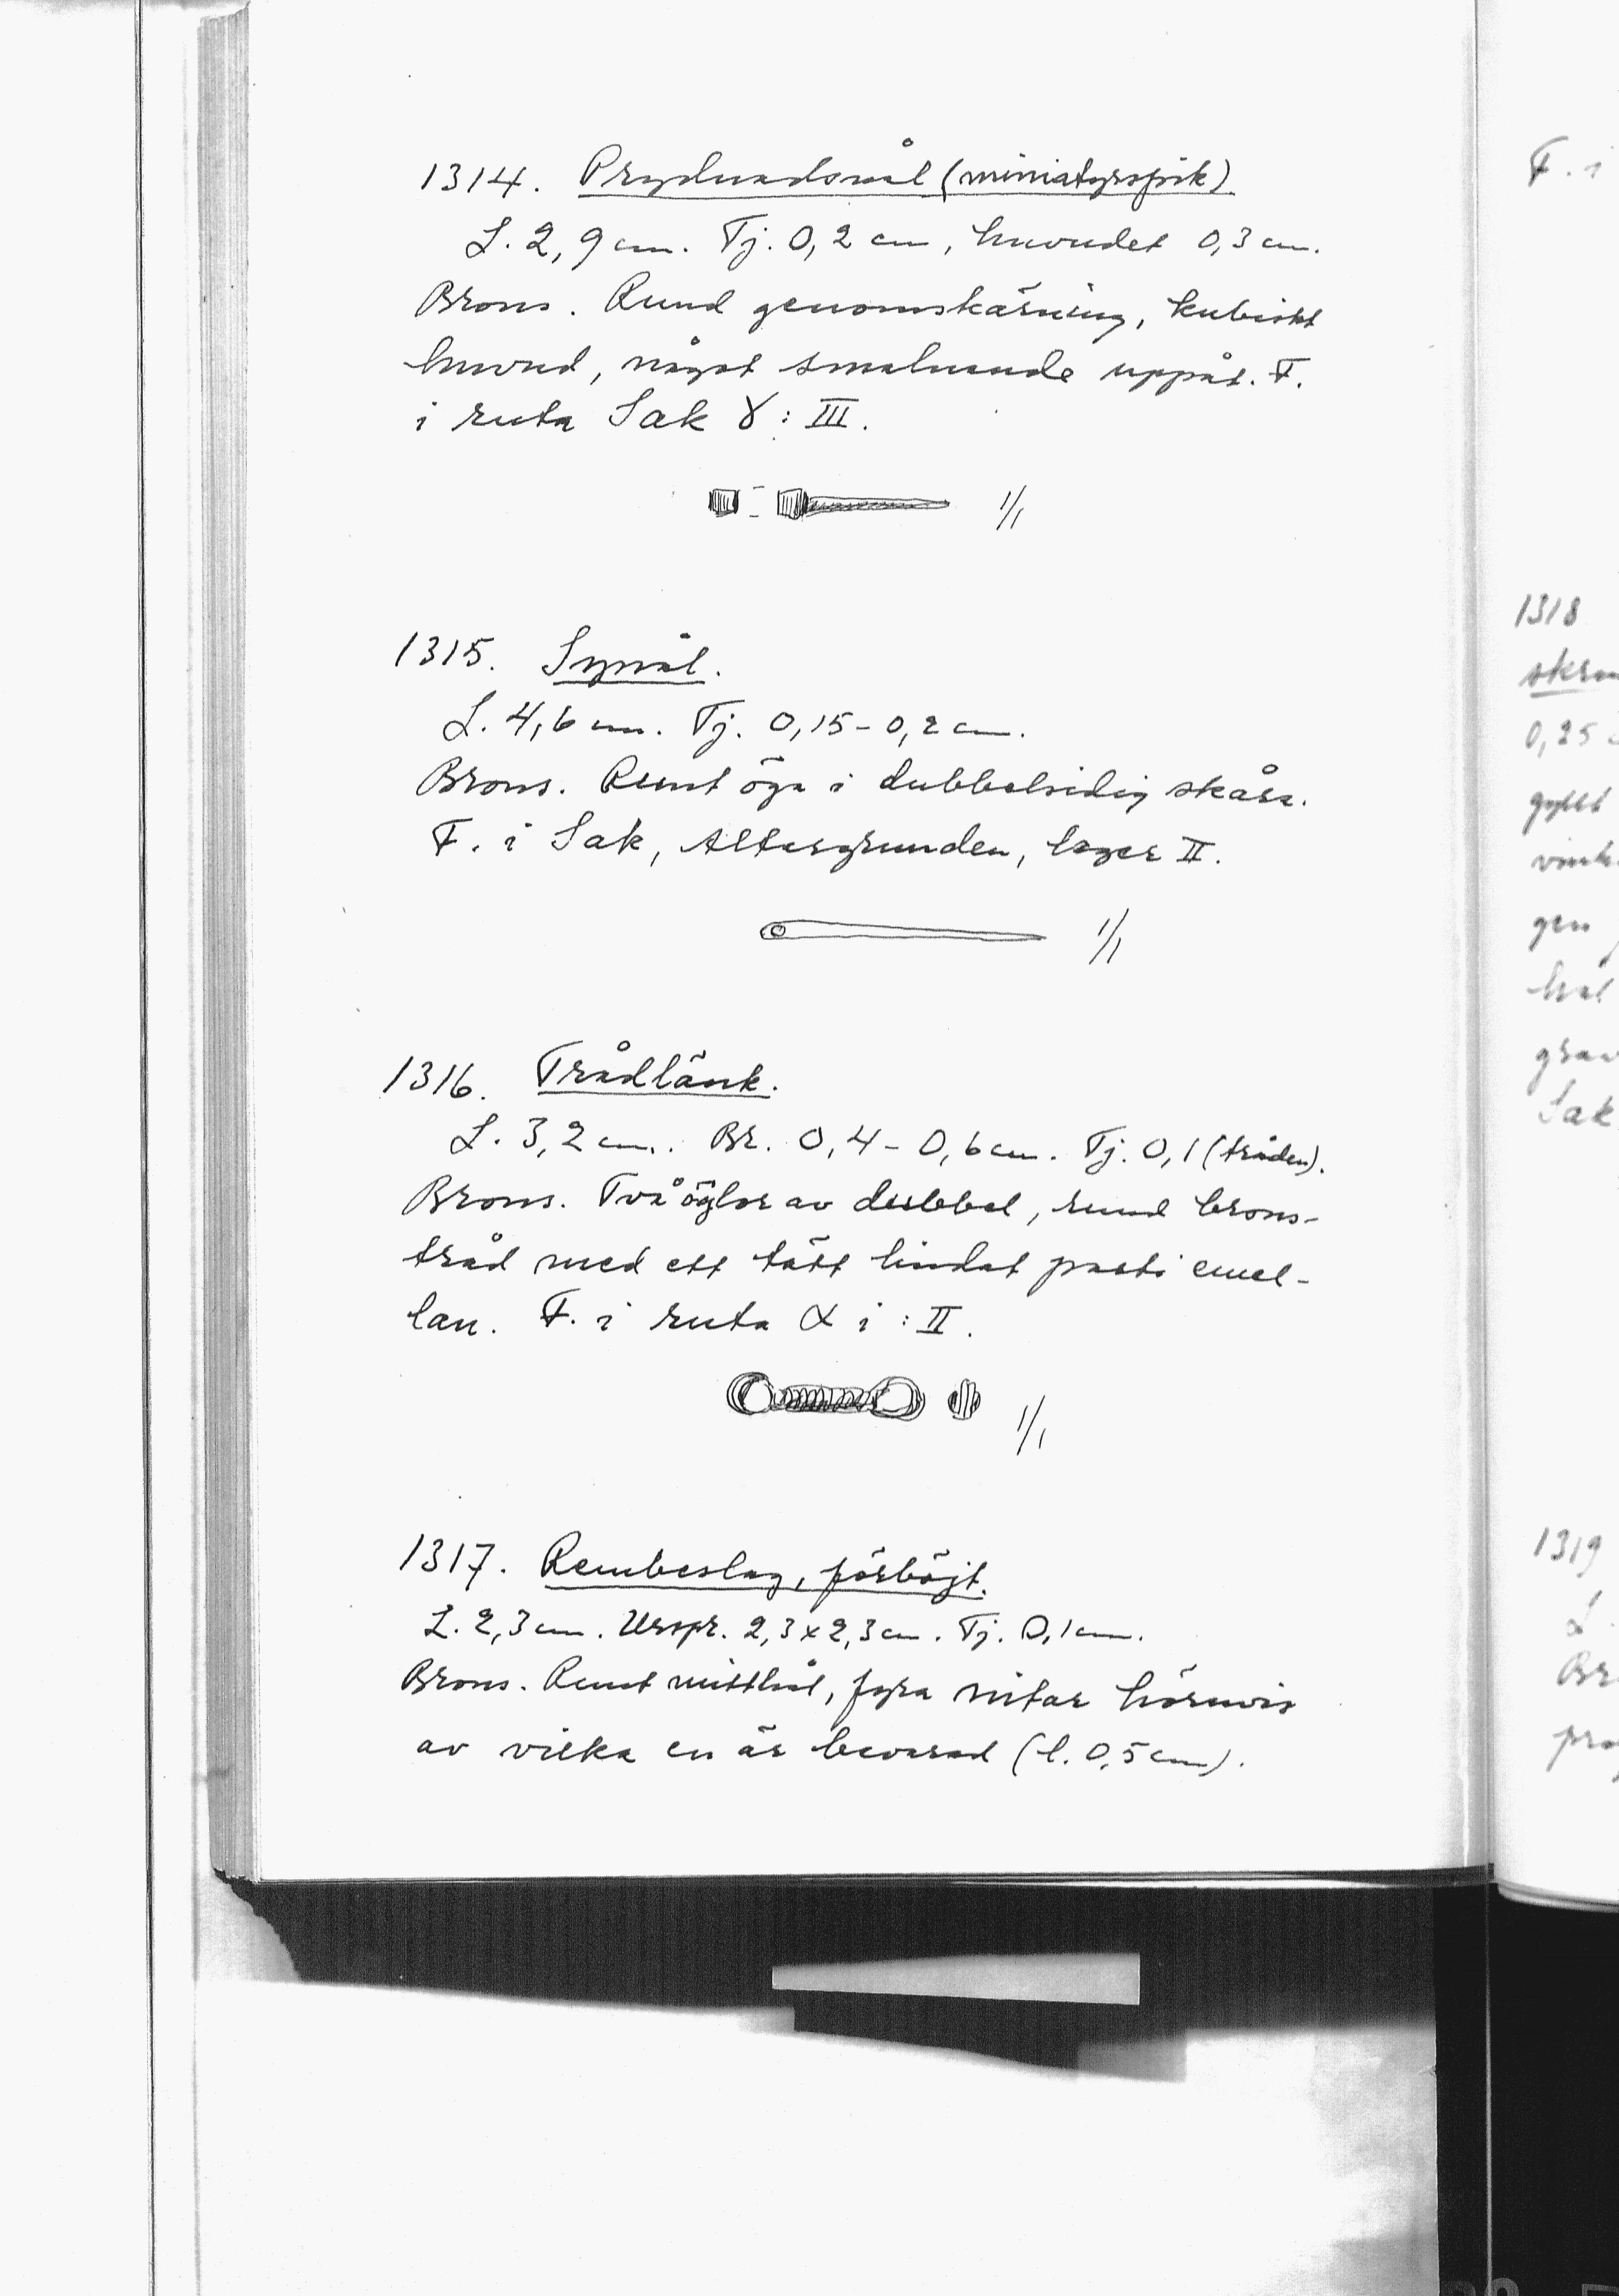 1314. Prydnadsnål (miniatyrspik)
L. 2,9 cm. Tj. 0,2 cm, huvudet 0,3 cm.
Brons. Rund genomskärning, kubiskt
huvud, något smalnande uppåt. F.
i ruta Sak γ : III.
1/1
1315. Synål.
L. 4,6 cm. Tj. 0,15 – 0,2 cm.
Brons. Runt öga i dubbelsidig skåra.
F. i Sak, Altargrunden, lager II.
1/1
1316. Trådlänk.
L. 3,2 cm. Br. 0,4 – 0,6 cm. Tj. 0,1 (tråden).
Brons. Två öglor av dubbel, rund brons-
tråd med ett tätt lindat parti emel-
lan. F. i ruta α i : II.
1/1
1317. Rembeslag, förböjt.
L. 2,3 cm. Urspr. 2,3 x 2,3 cm. Tj. 0,1 cm.
Brons. Runt mitthål, fyra nitar hörnvis
av vilka en är bevarad (l. 0,5 cm).
F. i
1318
0,25
gyllt
gen
hål
Sak
1319
L.
Br